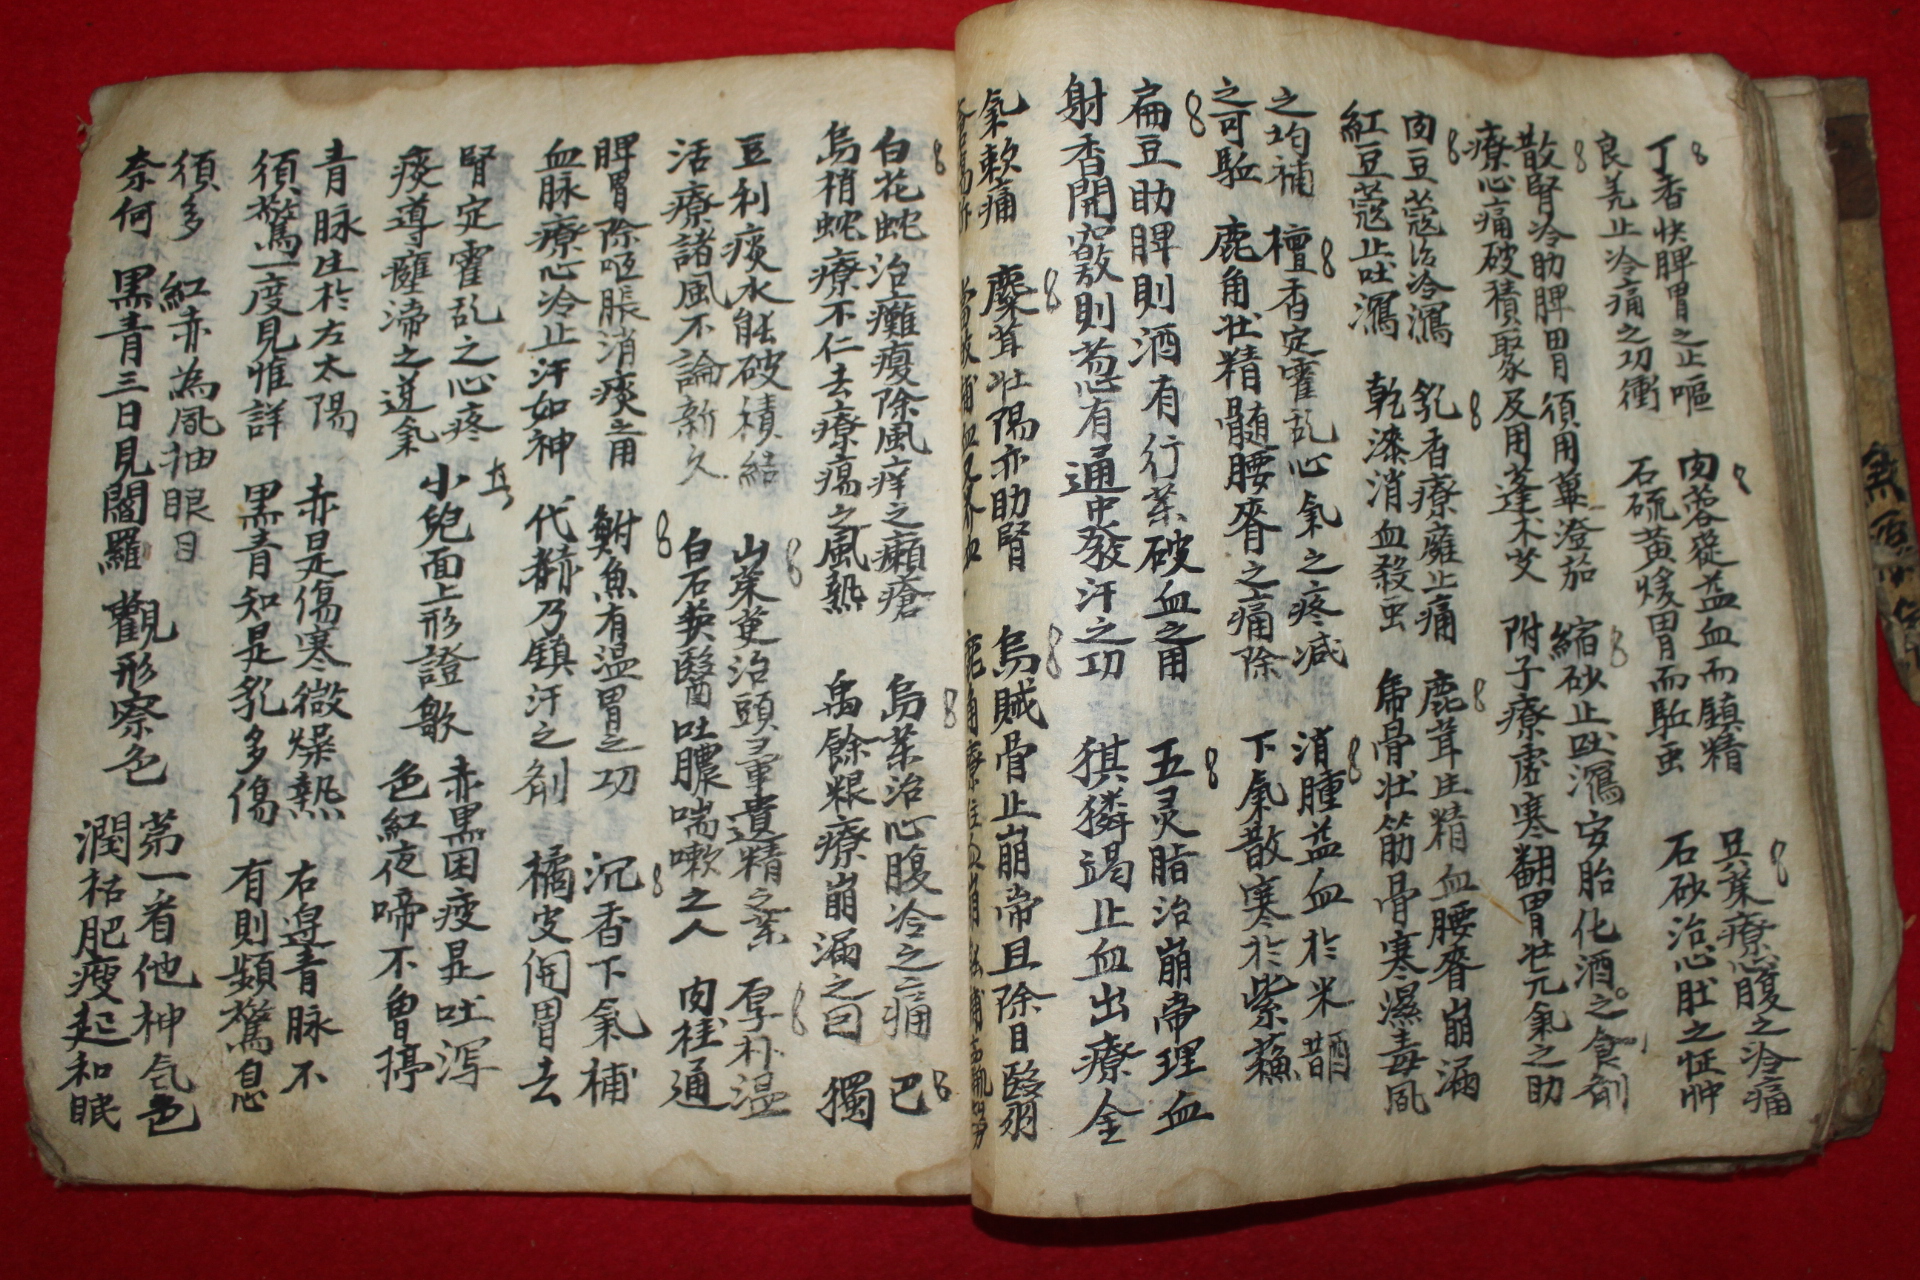 丁香快脾胃之止嘔
良羌止冷痛之功衝
肉蓉蓯益血而鎮精
石硫黃煖胃而駈虫
吳茱療心腹之冷痛
石砂治心肚之怔忡
散腎冷助脾胃
療心痛破積聚
須用蓽澄茄
及用蓬朮艾
縮砂止吐瀉安胎化酒之食剤
附子療虛寒翻胃壯元氣之助
肉豆蔻治冷瀉
紅豆蔻止吐瀉
乳香療癰止痛
乾漆消血殺虫
鹿茸生精血腰脊崩漏
虎骨壯筋骨寒濕毒風
之均補
之可駈
檀香定霍乱心氣之疼减
鹿角壯精髓腰脊之痛除
消腫益血於米醋
下氣散寒於紫蘇
扁豆助脾則酒有行茱破血之用
射香開竅則葱有通中發汗之功
五灵脂治崩帝理血
猉獜竭止血出療金
氣敕痛
麋茸壯陽亦助腎
烏賊骨止崩帶且除目翳
白花蛇治癱瘓除風痒之癩瘡
烏梢蛇療不仁去療瘍之風熱
烏茱治心腹冷之痛
禹餘粮療崩漏之曰
巴
獨
豆利痰水能破積結
活療諸風不論新久
山茱萸治頭暈遺精之業
白石英醫吐膿喘嗽之人
厚朴温
肉桂通
脾胃除嘔脹消痰之用
血脉療心冷止汗如神
鮒魚有温胃之功
代赭乃鎮汗之剤
沉香下氣補
橘皮開胃去
腎定霍乱之心疼
痰導癰滯之逆氣
小兒面上形證歌
赤黑困疲是吐泻
色紅夜啼不曾停
青脉生於左太陽
須驚一度見惟詳
赤是傷寒微燥熱
黑青知是乳多傷
右邊青脉不
有則頻驚息
須多
奈何
紅赤為風抽眼目
黑青三日見閻羅
觀形察色
第一看他神气色
潤枯肥瘦起和眠